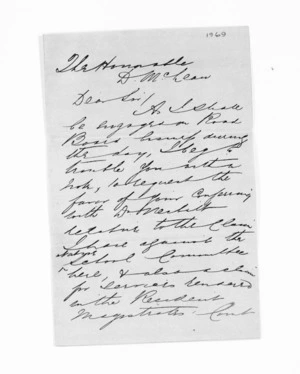 1969
The Honorable
D. McLean
Dear Sir/ As I shall
be engaged on Road
Board during
the day, I beg to
trouble You with a
note, to request the
favor of your conferring
with Dr Nesbitt
relative to the Claim
I have against the
Native
School Committee
here, & also a claim
for services rendered
in the Resident
Magistrates Court